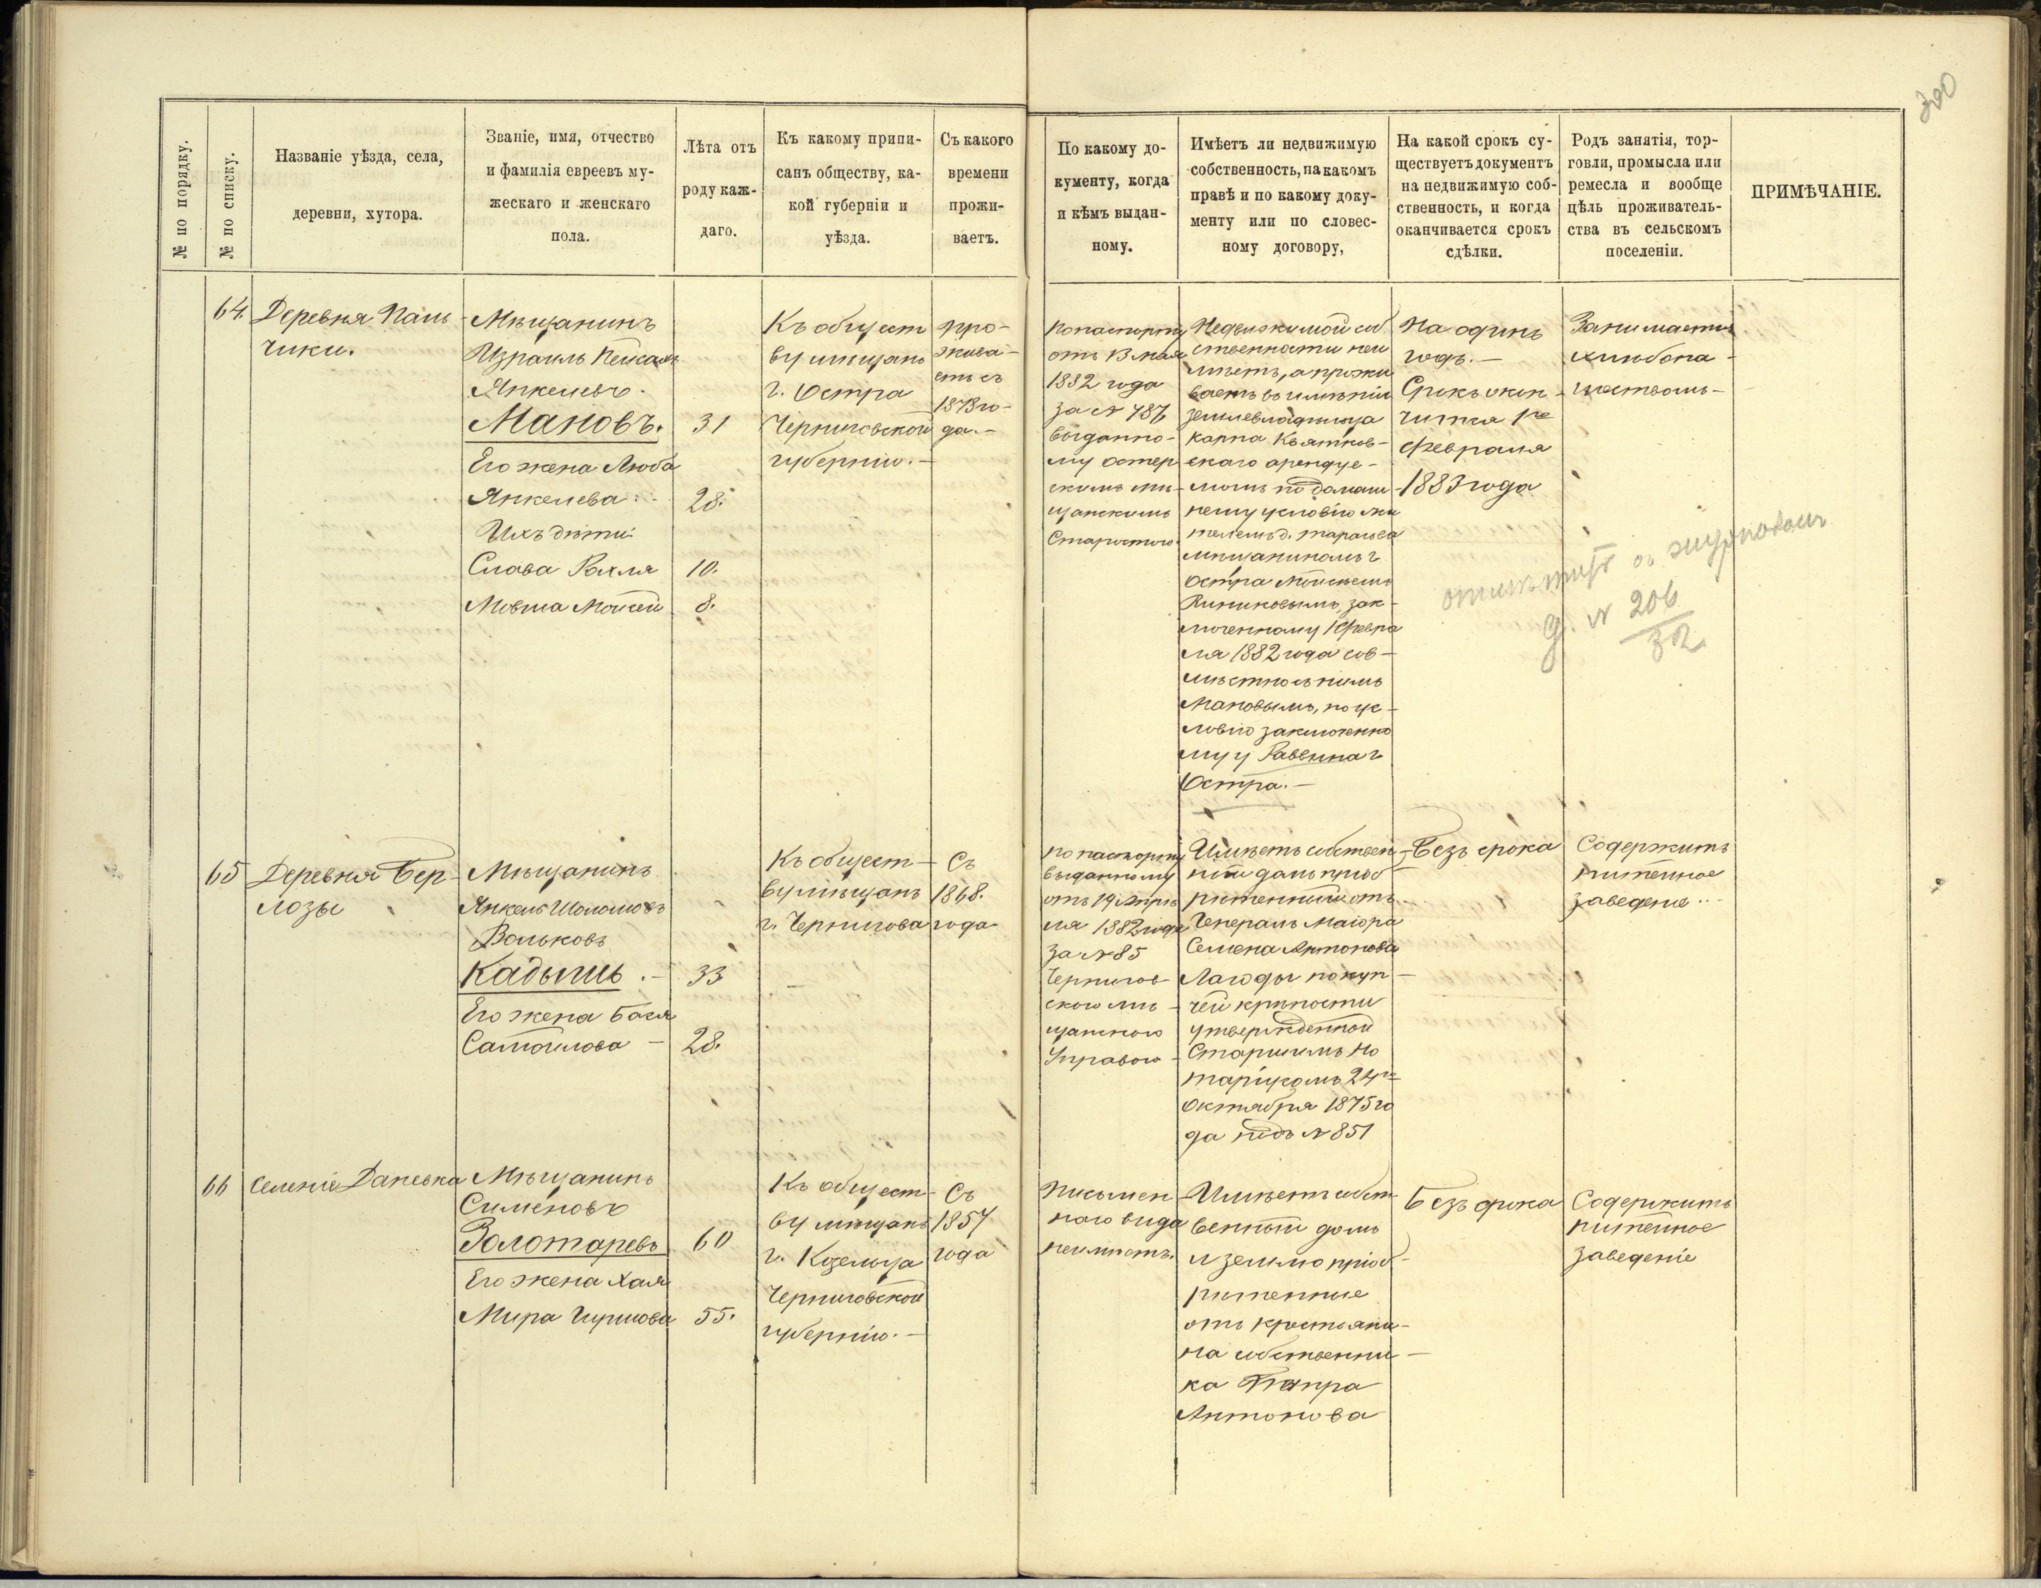 300
№ по порядку.
№ по списку.
Названіе уѣзда, села,
деревни, хутора.
Званіе, имя, отчество
и фамилія евреевъ му-
жескаго и женскаго
пола.
Лѣта отъ
роду каж-
даго.
Къ какому припи-
санъ обществу, ка-
кой губерніи и
уѣзда.
Съ какого
времени
прожи-
ваетъ.
По какому до-
кументу, когда
и кѣмъ выдан-
ному.
Имѣетъ ли недвижимую
собственность, на какомъ
правѣ и по какому доку-
менту или по словес-
ному договору,
На какой срокъ су-
ществуетъ документъ
на недвижимую соб-
ственность, и когда
оканчивается срокъ
сдѣлки.
Родъ занятія, тор-
говли, промысла или
ремесла и вообще
цѣль проживатель-
ства въ сельскомъ
поселеніи.
ПРИМѢЧАНІЕ.
64.
Деревня Паль
чики.
Мѣщанинъ
Израиль Пейсахъ
Янкелевъ.
Мановъ.
31
Его жена Люба
Янкелева
28.
Ихъ дѣти
Слава Рохля
10.
Мовша Мойсей
8.
Къ общест
ву мѣщанъ
г. Остра
Черниговской
губерніи.
про-
жива-
етъ съ
1878 го-
да.
По паспорту
отъ 13 мая
1882 года
за № 787
выданно-
му Остер
скимъ мѣ-
щанскимъ
Старостою
Недвижимой соб
ственности неи
мѣетъ, а прожи
ваетъ въ имѣніи
землевладѣльца
Карпа Квятков-
скаго арендуе-
момъ по домаш
нему условію жи
телемъ д. Тарасева
мѣщаниномъ г
Остра
зак-
люченному 1 Февра
ля 1882 года сов-
мѣстно съ нимъ
Мановымъ, по ус-
ловію заключенно
му у Раввина г
Остра.
На одинъ
годъ.
Срокъ окон-
чится 1го
Февраля
1883 года
Занимается
хлѣбопа-
шествомъ
журналомъ
№ 206
32
65
Деревня Бер-
лозы
Мѣщанинъ
Янкель Шоломовъ
Вольковъ
Кадышъ
33
Его жена Бася
Самойлова
28.
Къ общест-
ву мѣщанъ
г. Чернигова
Съ
1868.
года
По паспорту
выданному
отъ 19 Апрѣ
ля 1882 года
за № 85
Чернигов
скою мѣ-
щанскою
Управою
Имѣетъ собствен-
ный домъ пріоб-
рѣтенный отъ
Генералъ Маіора
Семена Антонова
Лагоды по куп-
чей крѣпости
утвержденной
Старшимъ Но
таріусомъ 24го
Октября 1875 го
да подъ № 851
Безъ срока
Содержитъ
питейное
заведеніе
66
Селеніе Даневка
Мѣщанинъ
Симоновъ
Золотаревъ
60
Его жена Хая
Мира Гиршова
55.
Къ общест-
ву мѣщанъ
г. Козельца
Черниговской
губерніи.
Съ
1857
года
Письмен
наго вида
неимѣетъ.
Имѣетъ собст
венный домъ
и землю пріоб-
рѣтенные
отъ крестьяни-
на собственни-
ка Петра
Антонова
Безъ срока
Содержитъ
питейное
заведеніе